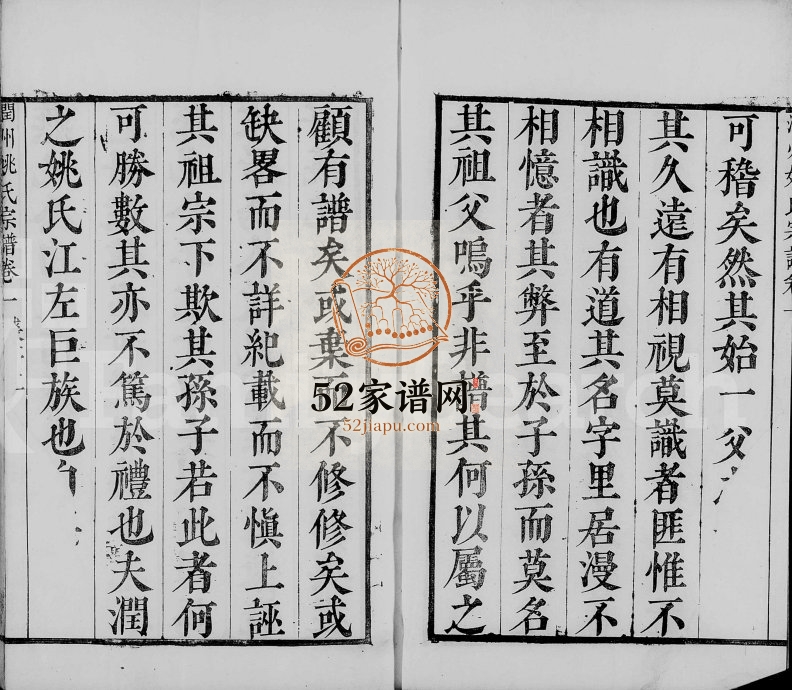 可稽矣然其始一父
其久遠有相視莫識者匪惟不
相識也有道其名字里居漫不
相憶者其弊至於子孫而莫名
其祖父嗚乎非譜其何以屬之
顧有譜矣或棄而不修修矣或
缺畧而不詳紀載而不慎上誣
其祖宗下欺其孫子若此者何
可勝數其亦不篤於禮也夫潤
之姚氏江左巨族也
潤州姚氏宗譜卷一
52家谱网
52jiapu.com